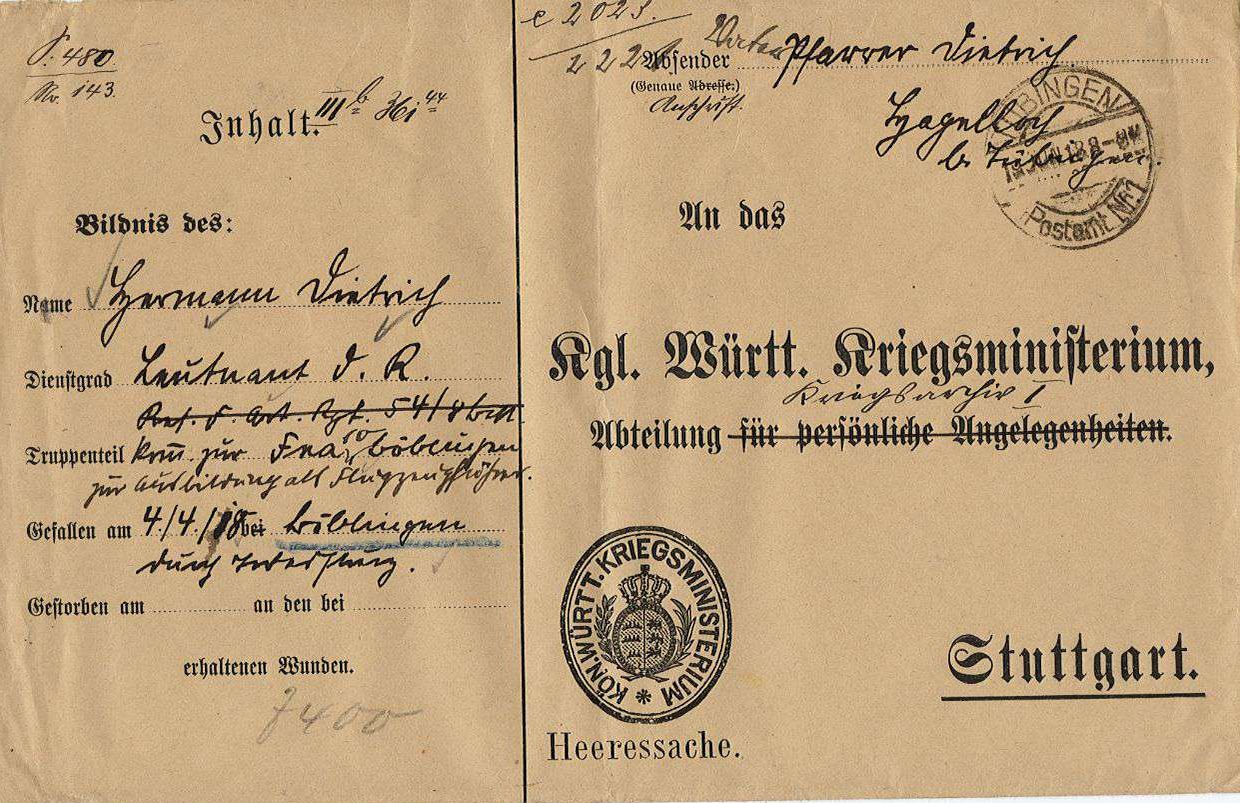 P. 480
No. 143.
Inhalt.
III b
Bildnis des:
Name Hermann Dietrich
Dienstgrad Leutnant d. R.
54/8
Truppenteil zur Fea Böblingen
zur Ausbildung als Flugzeugführer.
Gefallen am 4./4./18 bei Böblingen
durch Absturz.
Gestorben am an den bei
erhaltenen Wunden.
7400
e 2023.
222
Absender Pfarrer Dietrich
(Genaue Adresse.)
Anschrift.
Hagelloch
b. Tübingen.
TÜBINGEN
19 JUN 18 8-9 V
Postamt Nr 1
An das
Kgl. Württ. Kriegsministerium,
Kriegsarchiv I
Abteilung für persönliche Angelegenheiten.
KÖN. WÜRTT. KRIEGSMINISTERIUM
Stuttgart.
Heeressache.